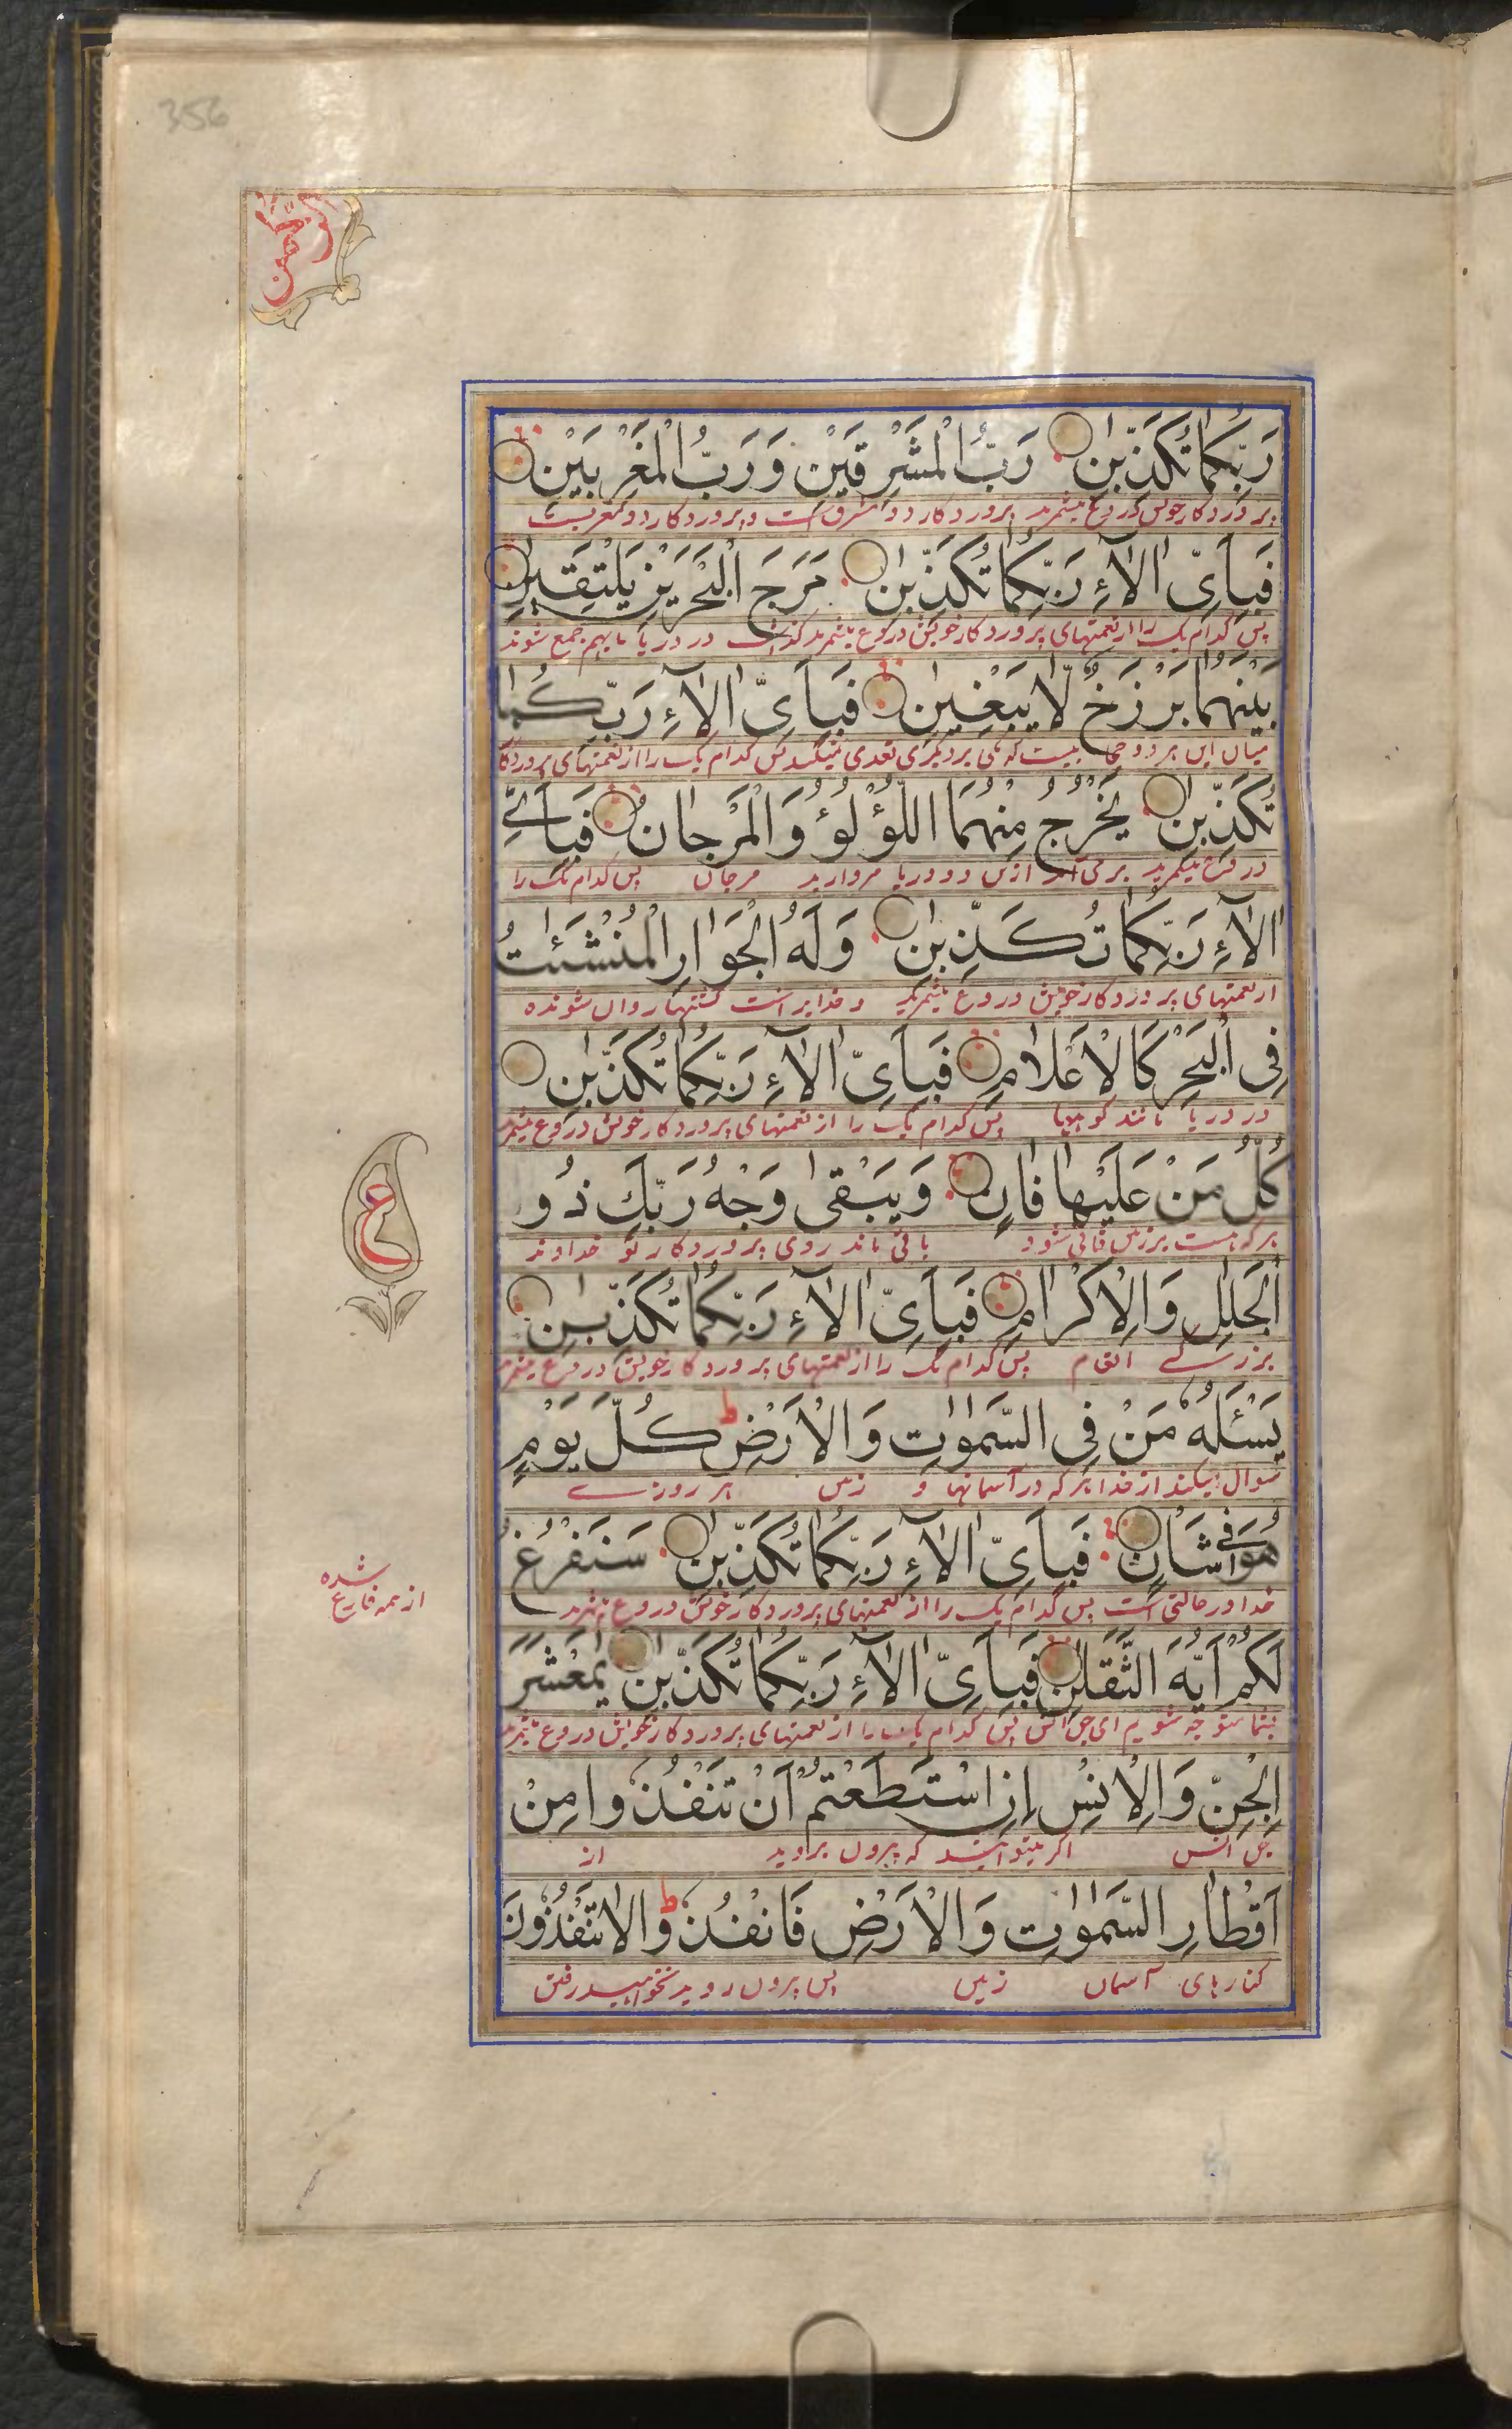 356
الرحمن
رَبِّكُمَا تُكَذِّبٰنِ رَبُّ الْمَشْرِقَيْنِ وَرَبُّ الْمَغْرِبَيْنِ
پروردكار خویش دروغ میشمرید پروردكار دو مشرق است و پروردكار دو مغربست
فَبِاَىِّ اٰلَآءِ رَبِّكُمَا تُكَذِّبٰنِ مَرَجَ الْبَحْرَيْنِ يَلْتَقِيٰنِ
پس كدام یک را از نعمتهای پروردكار خویش دروغ میشمرید كذاشت دو دریا با بهم جمع شوند
بَيْنَهُمَا بَرْزَخٌ لَّا يَبْغِيٰنِ فَبِاَىِّ اٰلَآءِ رَبِّكُمَا
میان این هر دو حجابیست كه یكی بر دیكری تعدی نمیكند پس كدام یک را از نعمتهای پروردكا
تُكَذِّبٰنِ يَخْرُجُ مِنْهُمَا اللُّؤْلُؤُ وَالْمَرْجَانُ فَبِاَىِّ
دروغ میكیرید بر می آید ازین دو دریا مروارید مرجان پس كدام یک را
اٰلَآءِ رَبِّكُمَا تُكَذِّبٰنِ وَلَهُ الْجَوَارِ الْمُنْشَئٰتُ
از نعمتهای پروردكار خویش دروغ میشمرید و خدایراست كشتیها روان شونده
فِى الْبَحْرِ كَالْاَعْلَامِ فَبِاَىِّ اٰلَآءِ رَبِّكُمَا تُكَذِّبٰنِ
در دریا مانند كوهها پس كدام یک را از نعمتهای پروردكار خویش دروغ میشمر
كُلُّ مَنْ عَلَيْهَا فَانٍ وَيَبْقٰى وَجْهُ رَبِّكَ ذُو
هر كه هست بر زمین فانی شود باقی ماند روی پروردكار تو خداوند
الْجَلٰلِ وَالْاِكْرَامِ فَبِاَىِّ اٰلَآءِ رَبِّكُمَا تُكَذِّبٰنِ
بزركی انعام پس كدام یک را از نعمتهای پروردكار خویش دروغ میشمر
يَسْئَلُهٗ مَنْ فِى السَّمٰوٰتِ وَالْاَرْضِ ط كُلَّ يَوْمٍ
سوال میكند از خدا هر كه در آسمانها و زمین هر روزے
هُوَ فِى شَاْنٍ فَبِاَىِّ اٰلَآءِ رَبِّكُمَا تُكَذِّبٰنِ سَنَفْرُغُ
خدا در حالتی است پس كدام یک را از نعمتهای پروردكار خویش دروغ میشمرید
لَكُمْ اَيُّهَ الثَّقَلٰنِ فَبِاَىِّ اٰلَآءِ رَبِّكُمَا تُكَذِّبٰنِ يٰمَعْشَرَ
بشما متوجه شویم ای جن انس پس كدام یک را از نعمتهای پروردكار خویش دروغ میشمرید
الْجِنِّ وَالْاِنْسِ اِنِ اسْتَطَعْتُمْ اَنْ تَنْفُذُوا مِنْ
جن انس اكر میتوانید كه بیرون بروید از
اَقْطَارِ السَّمٰوٰتِ وَالْاَرْضِ فَانْفُذُوْا ط لَا تَنْفُذُوْنَ
كنارهای آسمان زمین پس بیرون روید نخواهید رفتن
ع
از همه فارغ شده